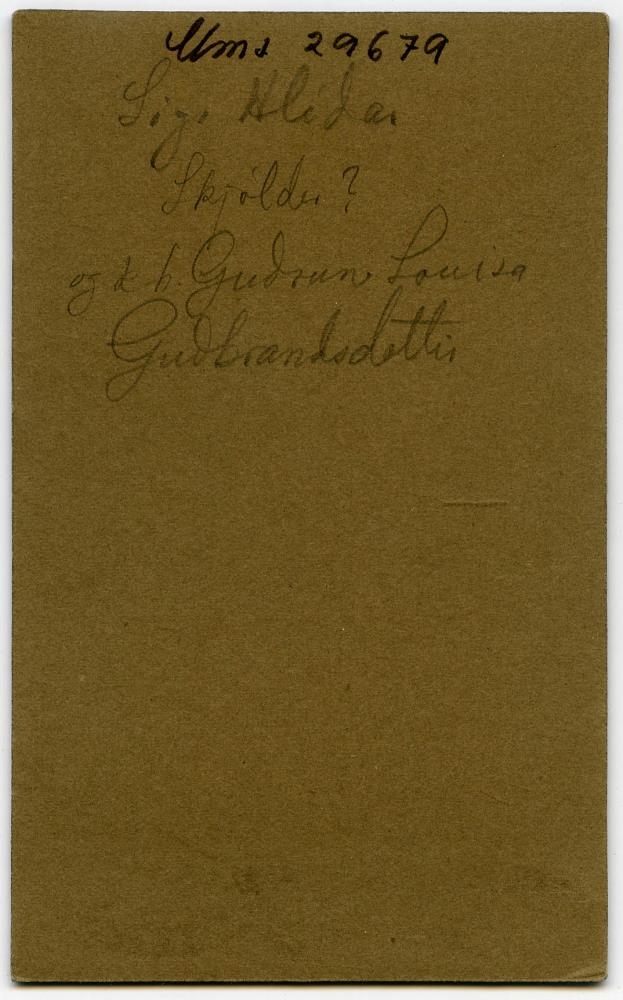 Mms 29679
Sig. Hlídar
Skjöldur?
og k. h. Guðrun Louisa
Guðbrandsdóttir